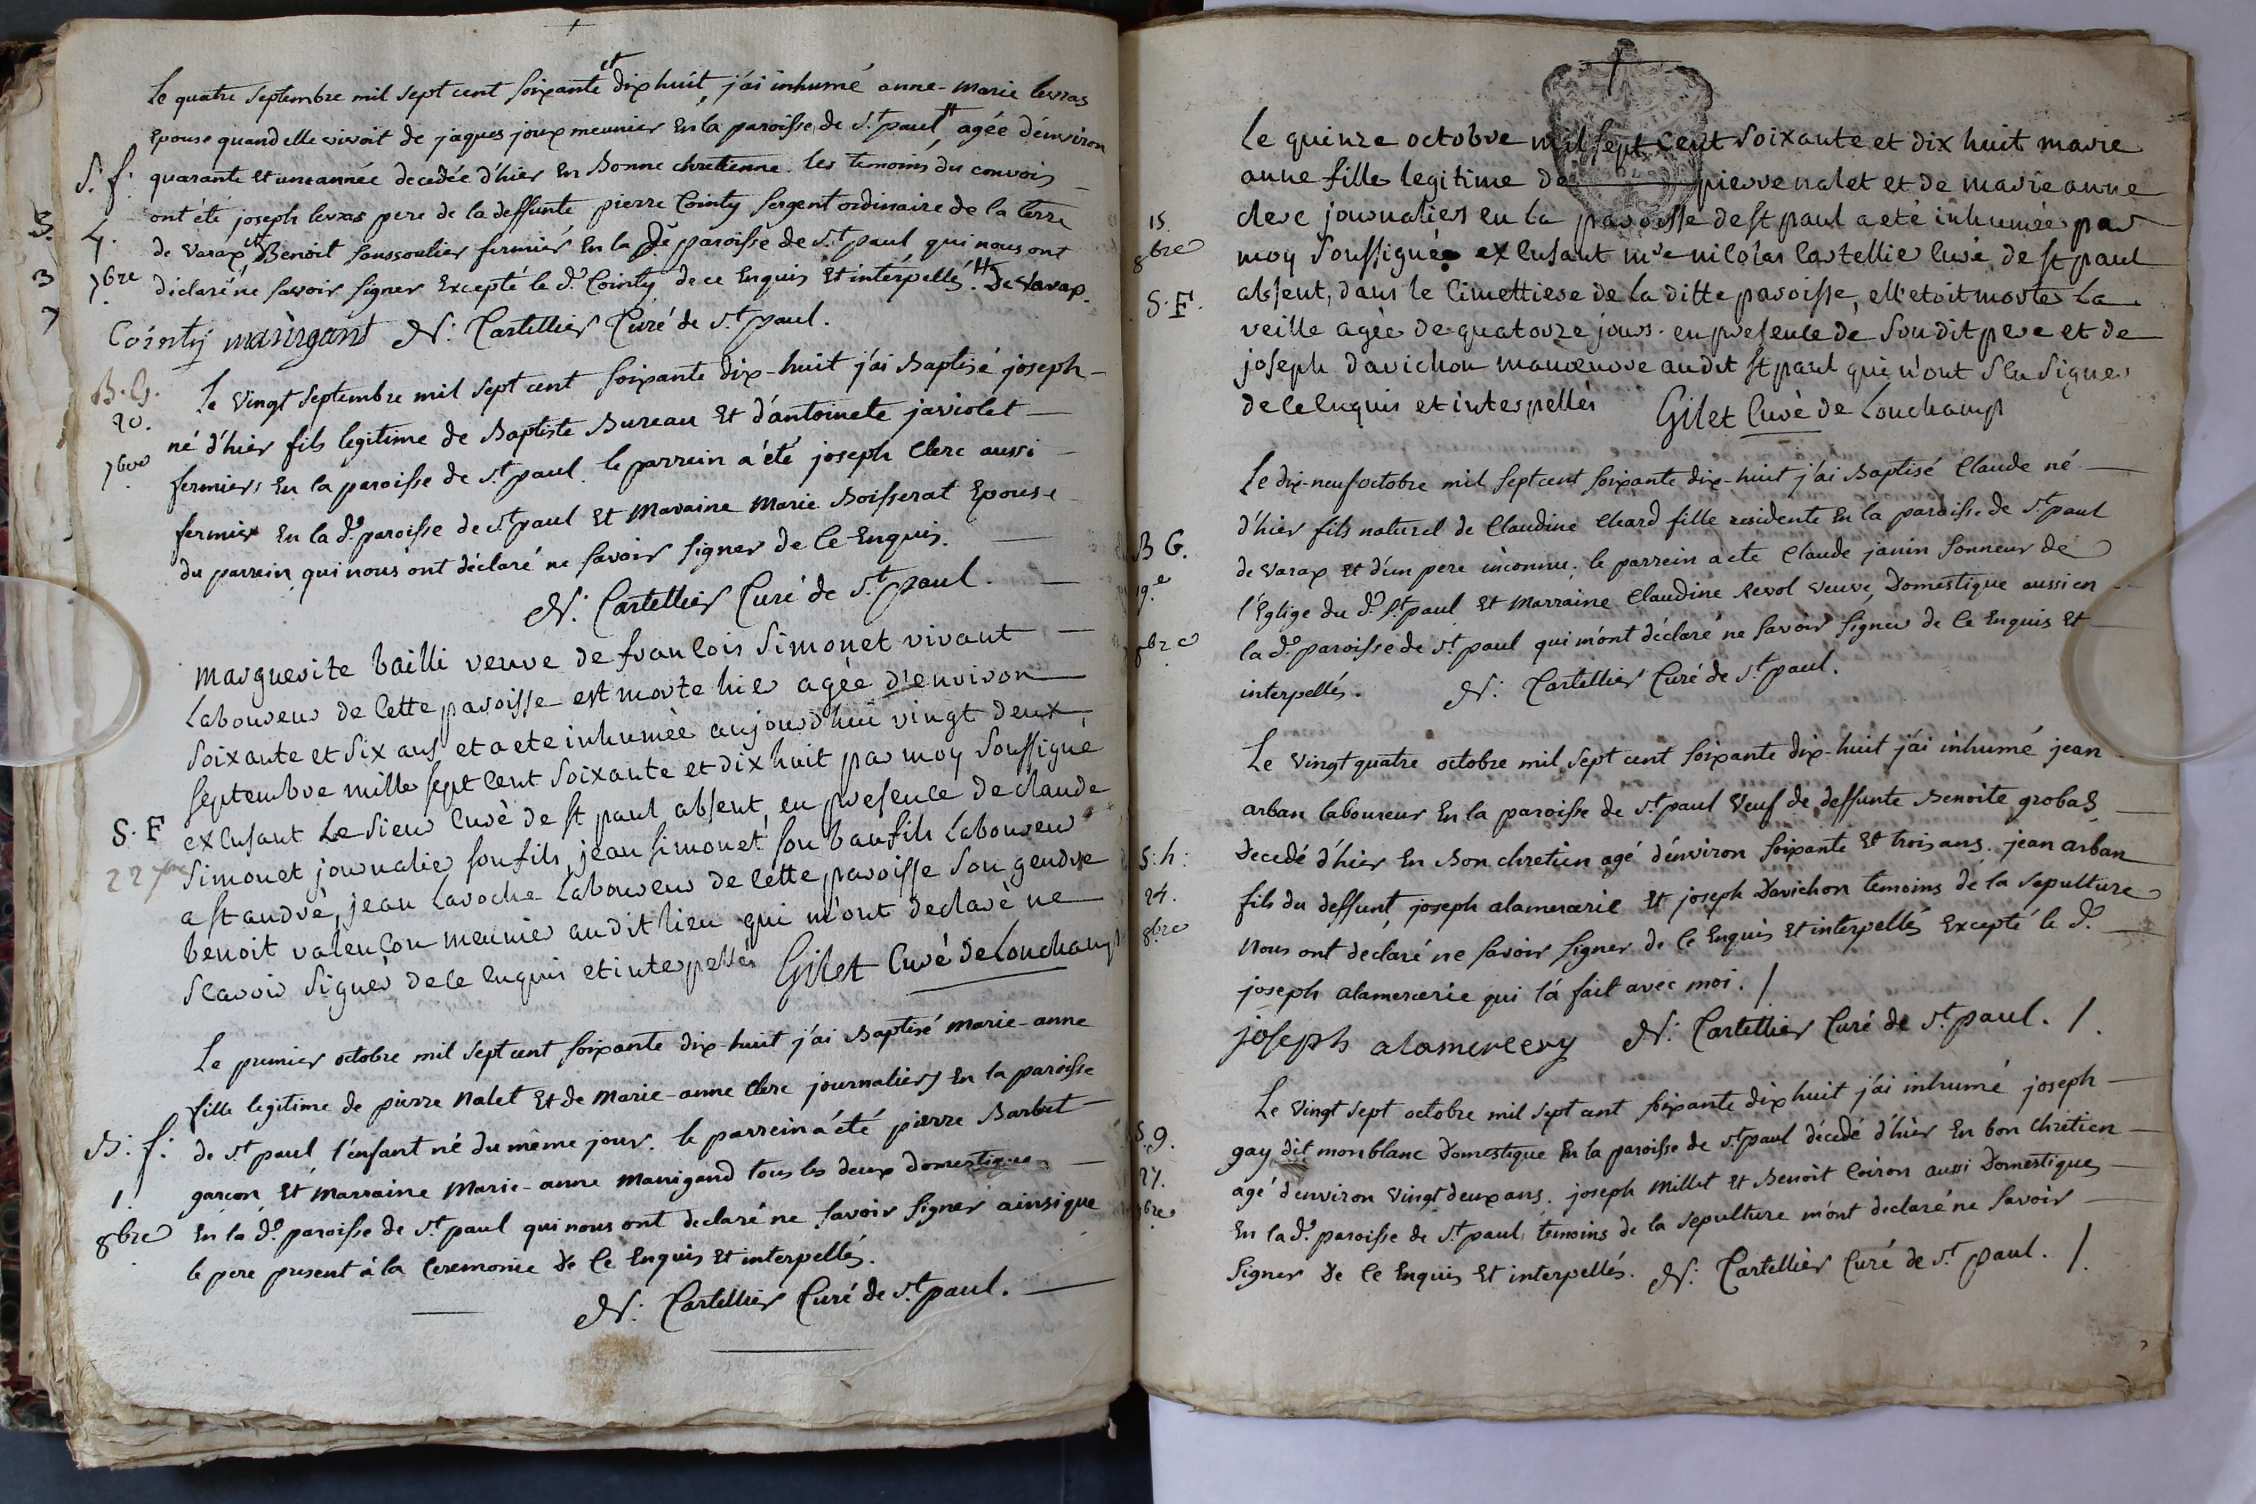 Le quatre septembre mil sept cent soixante et dix huit, j'ai inhumé anne-marie levras
Epouse quand elle vivoit de jaques joux meunier En la paroisse de S.t paul # agée d'environ
S. f. quarante et une année decedée d'hier En Bonne chretienne. les temoins du convois
4. ont été joseph levras pere de la deffunte pierre Cointy sergent ordinaire de la terre
de varax et Benoit fermier En la De paroisse de S.t paul qui nous ont
7bre déclaré ne savoir signer Excepté le d. Cointy de ce Enquis Et interpellés. # De varax.
Cointy N: Cartellier Curé de S.t paul.
B. G. Le vingt septembre mil sept cent soixante dix-huit j'ai Baptisé joseph
20. né d'hier fils legitime de Baptiste Bureau Et d'antoinete javiolet
7bre fermiers En la paroisse de S.t paul. le parrein a été joseph Clerc aussi
fermier En la de. paroisse de S.t paul Et Maraine Marie Boisserat Epouse
du parrein, qui nous ont déclaré ne savoir signer de Ce Enquis.
N: Cartellier Curé de S.t paul.
Marguerite bailli veuve de francois Simonet vivant
Laboureur de Cette paroisse est morte hier agée d'environ
Soixante et Six ans et a ete inhumèe aujourd'hui vingt deux
septembre mille sept Cent Soixante et dix huit par moy soussigné
S. F exCusant Le Sieur Curè de st paul absent, en presence de claude
22 7bre Simonet journalier son fils, jean simonet son baufils Laboureur
a st andrè, jean Laroche Laboureur de Cette paroisse son gendre
benoit valençon meunier audit lieu qui m'ont declarè ne
scavoir signer de Ce enquis et interpellès Gilet Curé de Lonchamp
Le premier octobre mil sept cent soixante dix-huit j'ai Baptisé Marie-anne
fille legitime de pierre Nalet Et de Marie-anne Clerc journaliers En la paroisse
B: f: de S.t paul l'enfant né du même jour. le parrein a été pierre Barbet
1. garcon Et Marraine Marie-anne Manigand tous les deux domestiques
8bre En la de. paroisse de S.t paul qui nous ont declaré ne savoir signer ainsi que
le pere present à la Ceremonie De Ce Enquis Et interpellés.
N: Cartellier Curé de S.t paul.
Le quinze octobre mil sept cent soixante et dix huit marie
anne fille legitime de pierre nalet et de marie anne
15 clerc journaliers en la paroisse de st paul a eté inhumée par
8bre moy soussignée exCusant mre nicolas Castellier Curé de st paul
S. F. absent, dans le Cimettiere de la ditte paroisse, ell'etoit morte la
veille agèe de quatorze jours. en presence de son dit pere et de
joseph davichon manoeuvre audit st paul qui n'ont sCu signer
de Ce enquis et interpellès Gilet Curè de Lonchamp
Le dix-neuf octobre mil sept cent soixante dix-huit j'ai Baptisé Claude né
d'hier fils naturel de Claudine Chard fille residente En la paroisse de S.t paul
B G. de varax Et d'un pere inconnu. le parrein a eté Claude janin Sonneur de
19.e l'Eglise du d. S.t paul Et Marraine Claudine Revol veuve, Domestique aussi en
8bre la de. paroisse de S.t paul qui m'ont déclaré ne savoir signer de Ce Enquis Et
interpellés. N: Cartellier Curé de S.t paul.
Le vingt quatre octobre mil sept cent soixante dix-huit j'ai inhumé jean
arban laboureur En la paroisse de S.t paul Veuf de deffunte Benoite grobas
S: h: Decedé d'hier En Bon chretien agé d'environ soixante Et trois ans. jean arban
24. fils du deffunt, joseph alamercerie Et joseph Davichon temoins de la sepulture
8bre Nous ont declaré ne savoir signer de Ce Enquis Et interpellés Excepté le d.
joseph alamercerie qui l'a fait avec moi. /
joseph alamercery N: Cartellier Curé de S.t paul. /.
Le vingt sept octobre mil sept cent soixante dix huit j'ai inhumé joseph
S. g. gay dit monblanc Domestique En la paroisse de S.t paul décedé d'hier En bon chretien
27. agé d'environ vingt deux ans. joseph Millet Et Benoit Coiron aussi Domestiques
8bre En la de. paroisse de S.t paul, temoins de la sepulture m'ont declaré ne savoir
signer De Ce Enquis Et interpellés. N: Cartellier Curé de S.t paul. /.